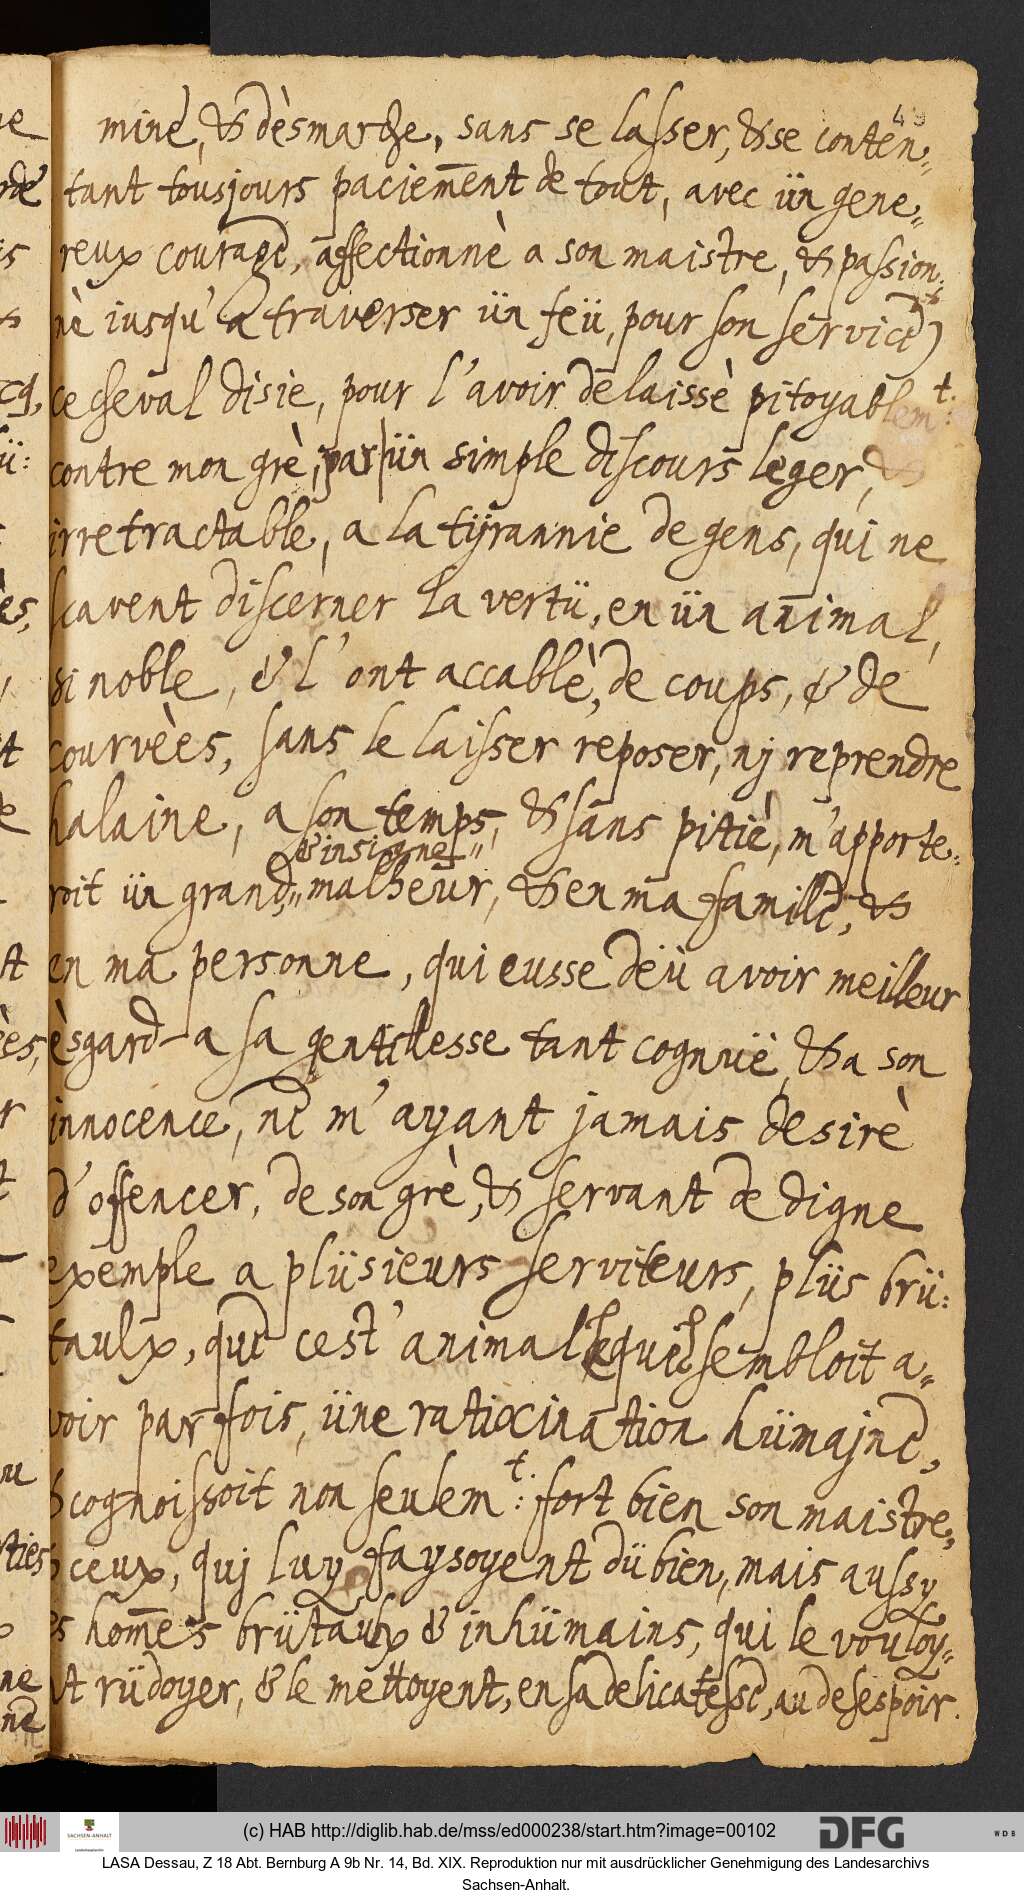 49
mine, & dèsmarche, sans se lasser, & se conten„
tant tousjours paciem̄ent de tout, avec ün gene„
reux courage, affectionnè a son maistre, & passion„
nè iusqu' a traverser ün feü, pour son service)
ce cheval disie, pour l'avoir delaissè pitoyablemt:
contre mon grè, par ün simple discours leger, &
irretractable, a la tÿrannie de gens, qui ne
scavent discerner la vertü, en ün animal,
si noble, & l'ont accablè, de coups, & de
courvèes, sans le laisser reposer, nj reprendre
halaine, a son temps, & sans pitiè, m'apporte„
& insigne„
roit ün grand„ malheur, & en ma famille, &
en ma personne, qui eusse deü avoir meilleur
èsgard a sa gentillesse tant cognuë, & a son
innocence, ne m'ayant jamais desirè
d'offencer, de son grè, & servant de digne
exemple a plüsieurs serviteurs, plüs brü:
taulx, que cest' animal lequel sembloit a„
voir par fois, üne ratiocination hümajne,
& cognoissoit non seulemt: fort bien son maistre,
& ceux, quj luy faysoyent dü bien, mais aussy
les hom̄es brütaulx & inhümains, qui le vouloy„
ent rüdoyer, & le mettoyent, en sa delicatesse, au desespoir.
(c) HAB http://diglib.hab.de/mss/ed000238/start.htm?image=00102
SACHSEN-ANHALT
DFG
WDB
LASA Dessau, Z 18 Abt. Bernburg A 9b Nr. 14, Bd. XIX. Reproduktion nur mit ausdrücklicher Genehmigung des Landesarchivs
Sachsen-Anhalt.